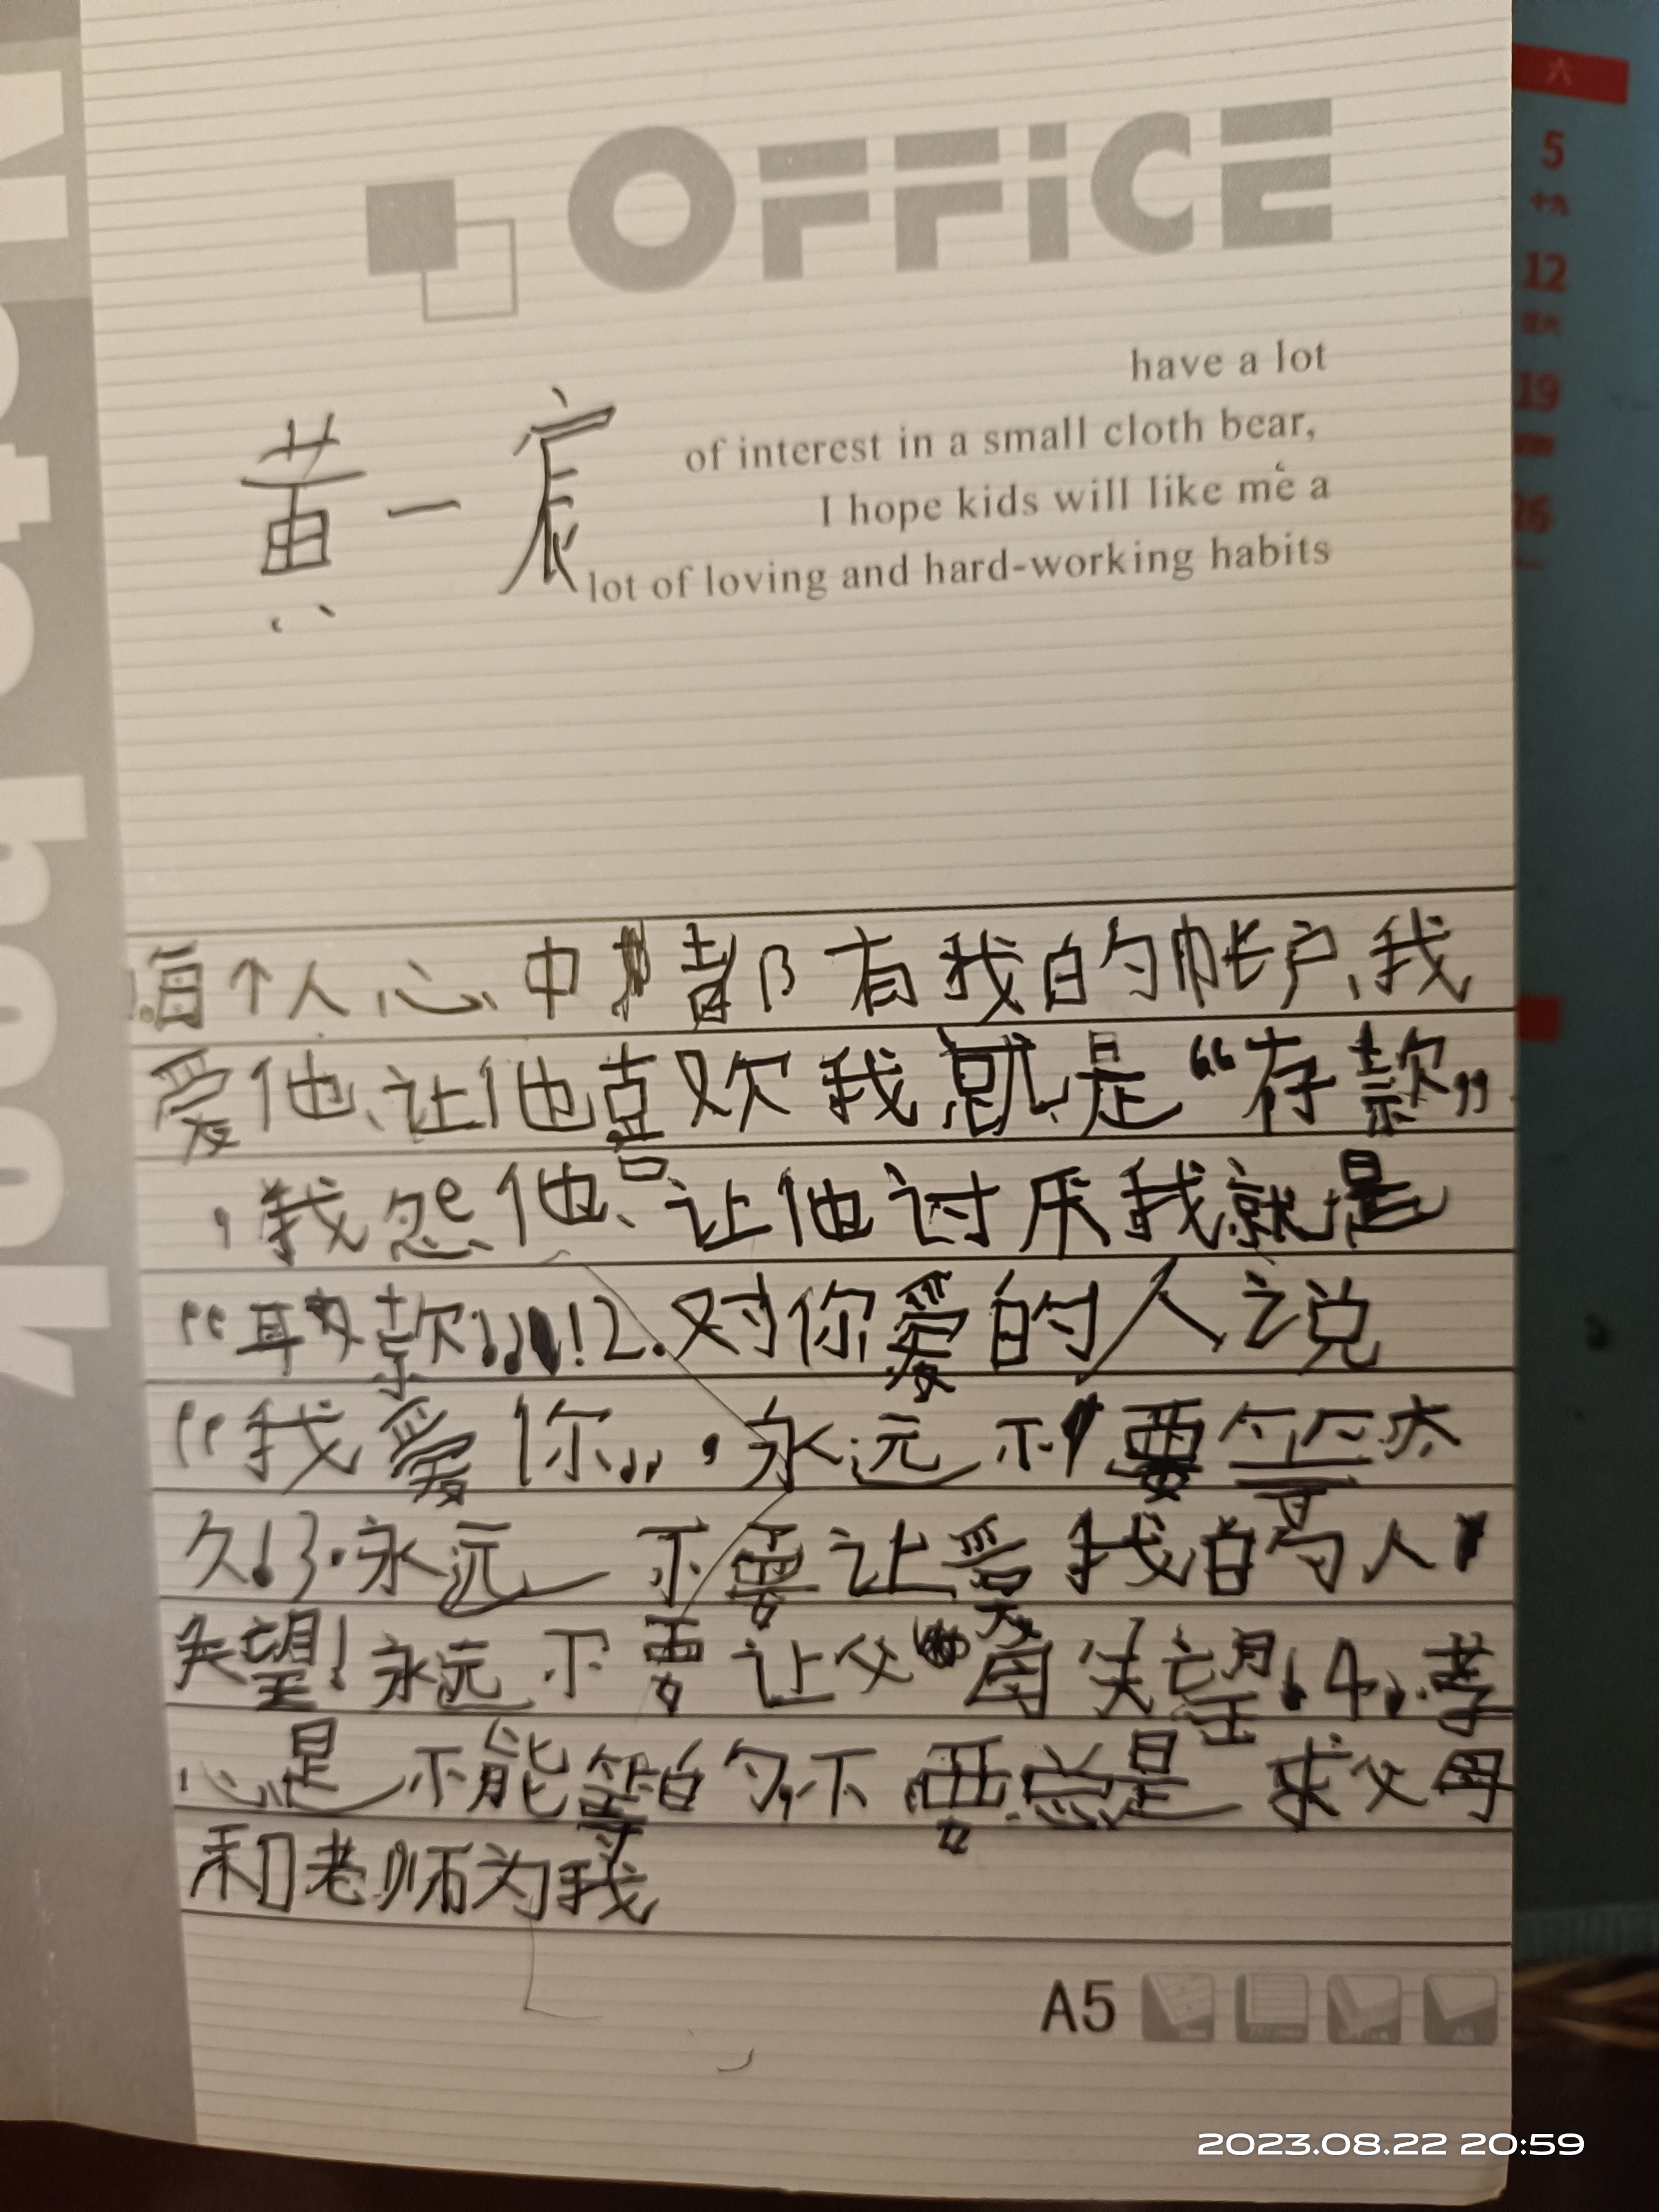 OFFiCE
have a lot
of interest in a small cloth bear,
I hope kids will like me a
lot of loving and hard-working habits
黄一宸
每个人心中都有我的帐户、我
爱他、让他喜欢我就是“存款”
，我怨他、让他讨厌我就是
“取款”!2.对你爱的人说
“我爱你”，永远不要等太
久!3.永远不要让爱我的人
失望!永远不要让父母失望!4.孝
心是不能等的,不要总是求父母
和老师为我
A5
六
5
十九
12
19
26
Note book
2023.08.22 20:59